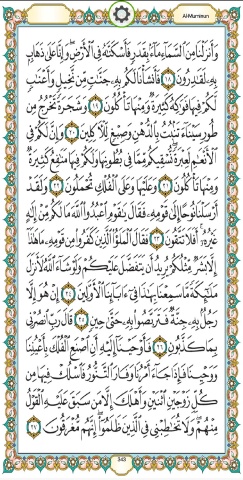 Al-Muminun
وَأَنزَلْنَا مِنَ ٱلسَّمَآءِ مَآءًۢ بِقَدَرٍ فَأَسْكَنَّـٰهُ فِى ٱلْأَرْضِ ۖ وَإِنَّا عَلَىٰ ذَهَابٍۭ
بِهِۦ لَقَـٰدِرُونَ ١٨ فَأَنشَأْنَا لَكُم بِهِۦ جَنَّـٰتٍ مِّن نَّخِيلٍ وَأَعْنَـٰبٍ
لَّكُمْ فِيهَا فَوَٰكِهُ كَثِيرَةٌ وَمِنْهَا تَأْكُلُونَ ١٩ وَشَجَرَةً تَخْرُجُ مِن
طُورِ سَيْنَآءَ تَنۢبُتُ بِٱلدُّهْنِ وَصِبْغٍ لِّلْـَٔاكِلِينَ ٢٠ وَإِنَّ لَكُمْ فِى
ٱلْأَنْعَـٰمِ لَعِبْرَةً ۖ نُّسْقِيكُم مِّمَّا فِى بُطُونِهَا وَلَكُمْ فِيهَا مَنَـٰفِعُ كَثِيرَةٌ
وَمِنْهَا تَأْكُلُونَ ٢١ وَعَلَيْهَا وَعَلَى ٱلْفُلْكِ تُحْمَلُونَ ٢٢ وَلَقَدْ
أَرْسَلْنَا نُوحًا إِلَىٰ قَوْمِهِۦ فَقَالَ يَـٰقَوْمِ ٱعْبُدُوا۟ ٱللَّهَ مَا لَكُم مِّنْ إِلَـٰهٍ
غَيْرُهُۥٓ ۖ أَفَلَا تَتَّقُونَ ٢٣ فَقَالَ ٱلْمَلَؤُا۟ ٱلَّذِينَ كَفَرُوا۟ مِن قَوْمِهِۦ مَا هَـٰذَآ
إِلَّا بَشَرٌ مِّثْلُكُمْ يُرِيدُ أَن يَتَفَضَّلَ عَلَيْكُمْ وَلَوْ شَآءَ ٱللَّهُ لَأَنزَلَ
مَلَـٰٓئِكَةً مَّا سَمِعْنَا بِهَـٰذَا فِىٓ ءَابَآئِنَا ٱلْأَوَّلِينَ ٢٤ إِنْ هُوَ إِلَّا
رَجُلٌۢ بِهِۦ جِنَّةٌ فَتَرَبَّصُوا۟ بِهِۦ حَتَّىٰ حِينٍ ٢٥ قَالَ رَبِّ ٱنصُرْنِى
بِمَا كَذَّبُونِ ٢٦ فَأَوْحَيْنَآ إِلَيْهِ أَنِ ٱصْنَعِ ٱلْفُلْكَ بِأَعْيُنِنَا
وَوَحْيِنَا فَإِذَا جَآءَ أَمْرُنَا وَفَارَ ٱلتَّنُّورُ ۙ فَٱسْلُكْ فِيهَا مِن
كُلٍّ زَوْجَيْنِ ٱثْنَيْنِ وَأَهْلَكَ إِلَّا مَن سَبَقَ عَلَيْهِ ٱلْقَوْلُ
مِنْهُمْ ۖ وَلَا تُخَـٰطِبْنِى فِى ٱلَّذِينَ ظَلَمُوٓا۟ ۖ إِنَّهُم مُّغْرَقُونَ ٢٧
343